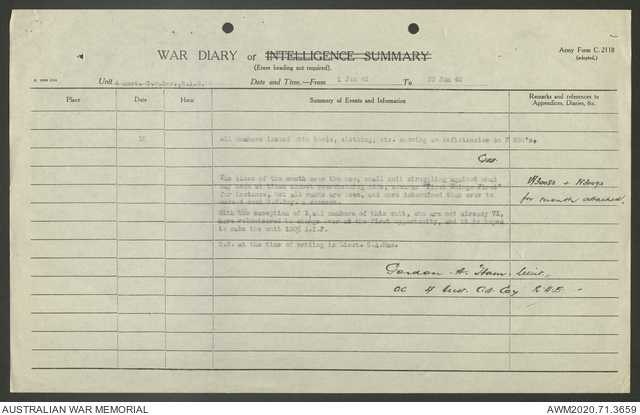 WAR DIARY or INTELLIGENCE SUMMARY
Army Form C. 2118
(Erase heading not required).
(adapted.)
Unit
Date and Time.—From 1 Jun 42 To 30 Jun 42
Place
Date
Hour
Summary of Events and Information
Remarks and references to
Appendices, Diaries, &c.
30
All members issued with boots, clothing, etc. showing as deficiencies on
The close of the month sees the new, small unit struggling against what
may seem at times almost overwhelming odds, even as "First Things First"
for instance, but all ranks are keen, and more determined than ever to
make 4 Aust C.S.Coy. a success.
With the exception of 3, all members of this unit, who are not already VX,
have volunteered to change over at the first opportunity, and it is hoped
to make the unit 100% A.I.F.
for month attached.
O.C. at the time of writing is Lieut. G.A.Ham.
Gordon A. Ham Lieut.,
OC 4 Aust. C.S. Coy R.A.E.
AUSTRALIAN WAR MEMORIAL
AWM2020.71.3659